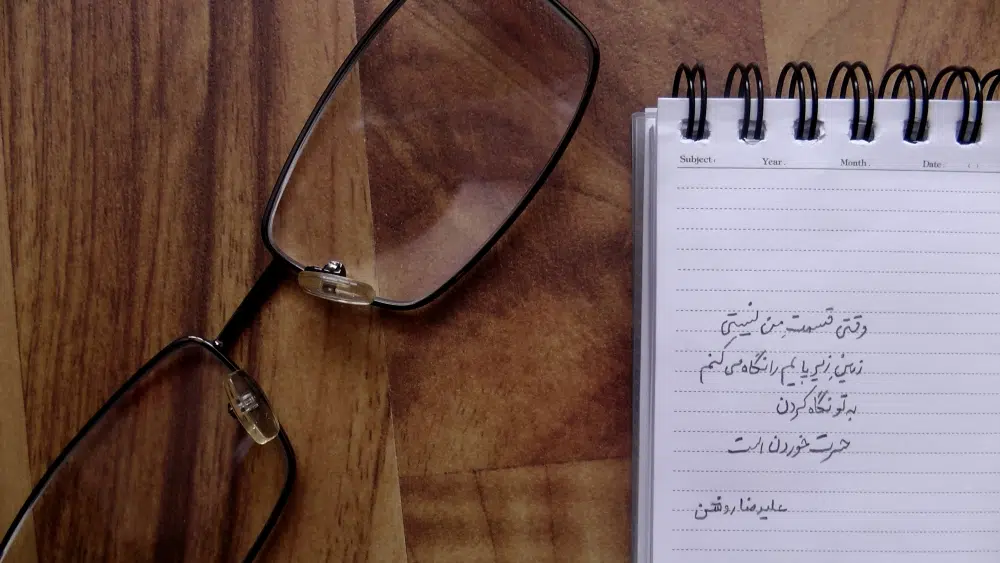 Subject: Year. Month. Date. ( )
وقتی قسمت من نیستی
زمینِ زیر پایم را نگاه می کنم
به تو نگاه کردن
حسرت خوردن است
علیرضا روشن